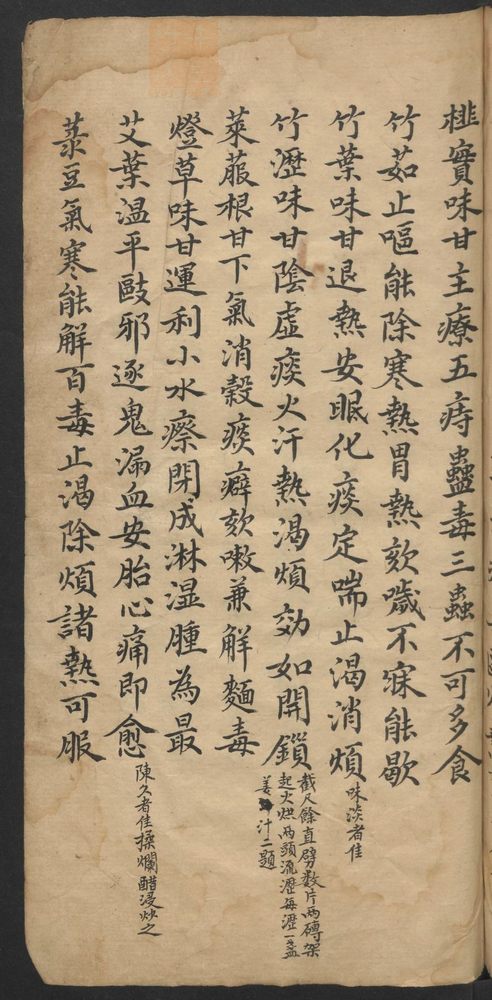 榧實味甘主療五痔蠱毒三蟲不可多食
竹茹止嘔能除寒熱胃熱欬噦不寐能歇
竹葉味甘退熱安眠化痰定喘止渴消煩
味淡者佳
竹瀝味甘陰虛痰火汗熱渴煩効如開鎖
截尺餘直劈数片两磚架
起火烘两頭流瀝每瀝一盞
姜汁二題
萊菔根甘下氣消穀痰癖欬嗽兼解麵毒
燈草味甘運利小水癃閉成淋湿腫為最
艾葉温平毆邪逐鬼漏血安胎心痛即愈
陳久者佳揉爛醋浸炒之
菉豆氣寒能解百毒止渴除煩諸熱可服